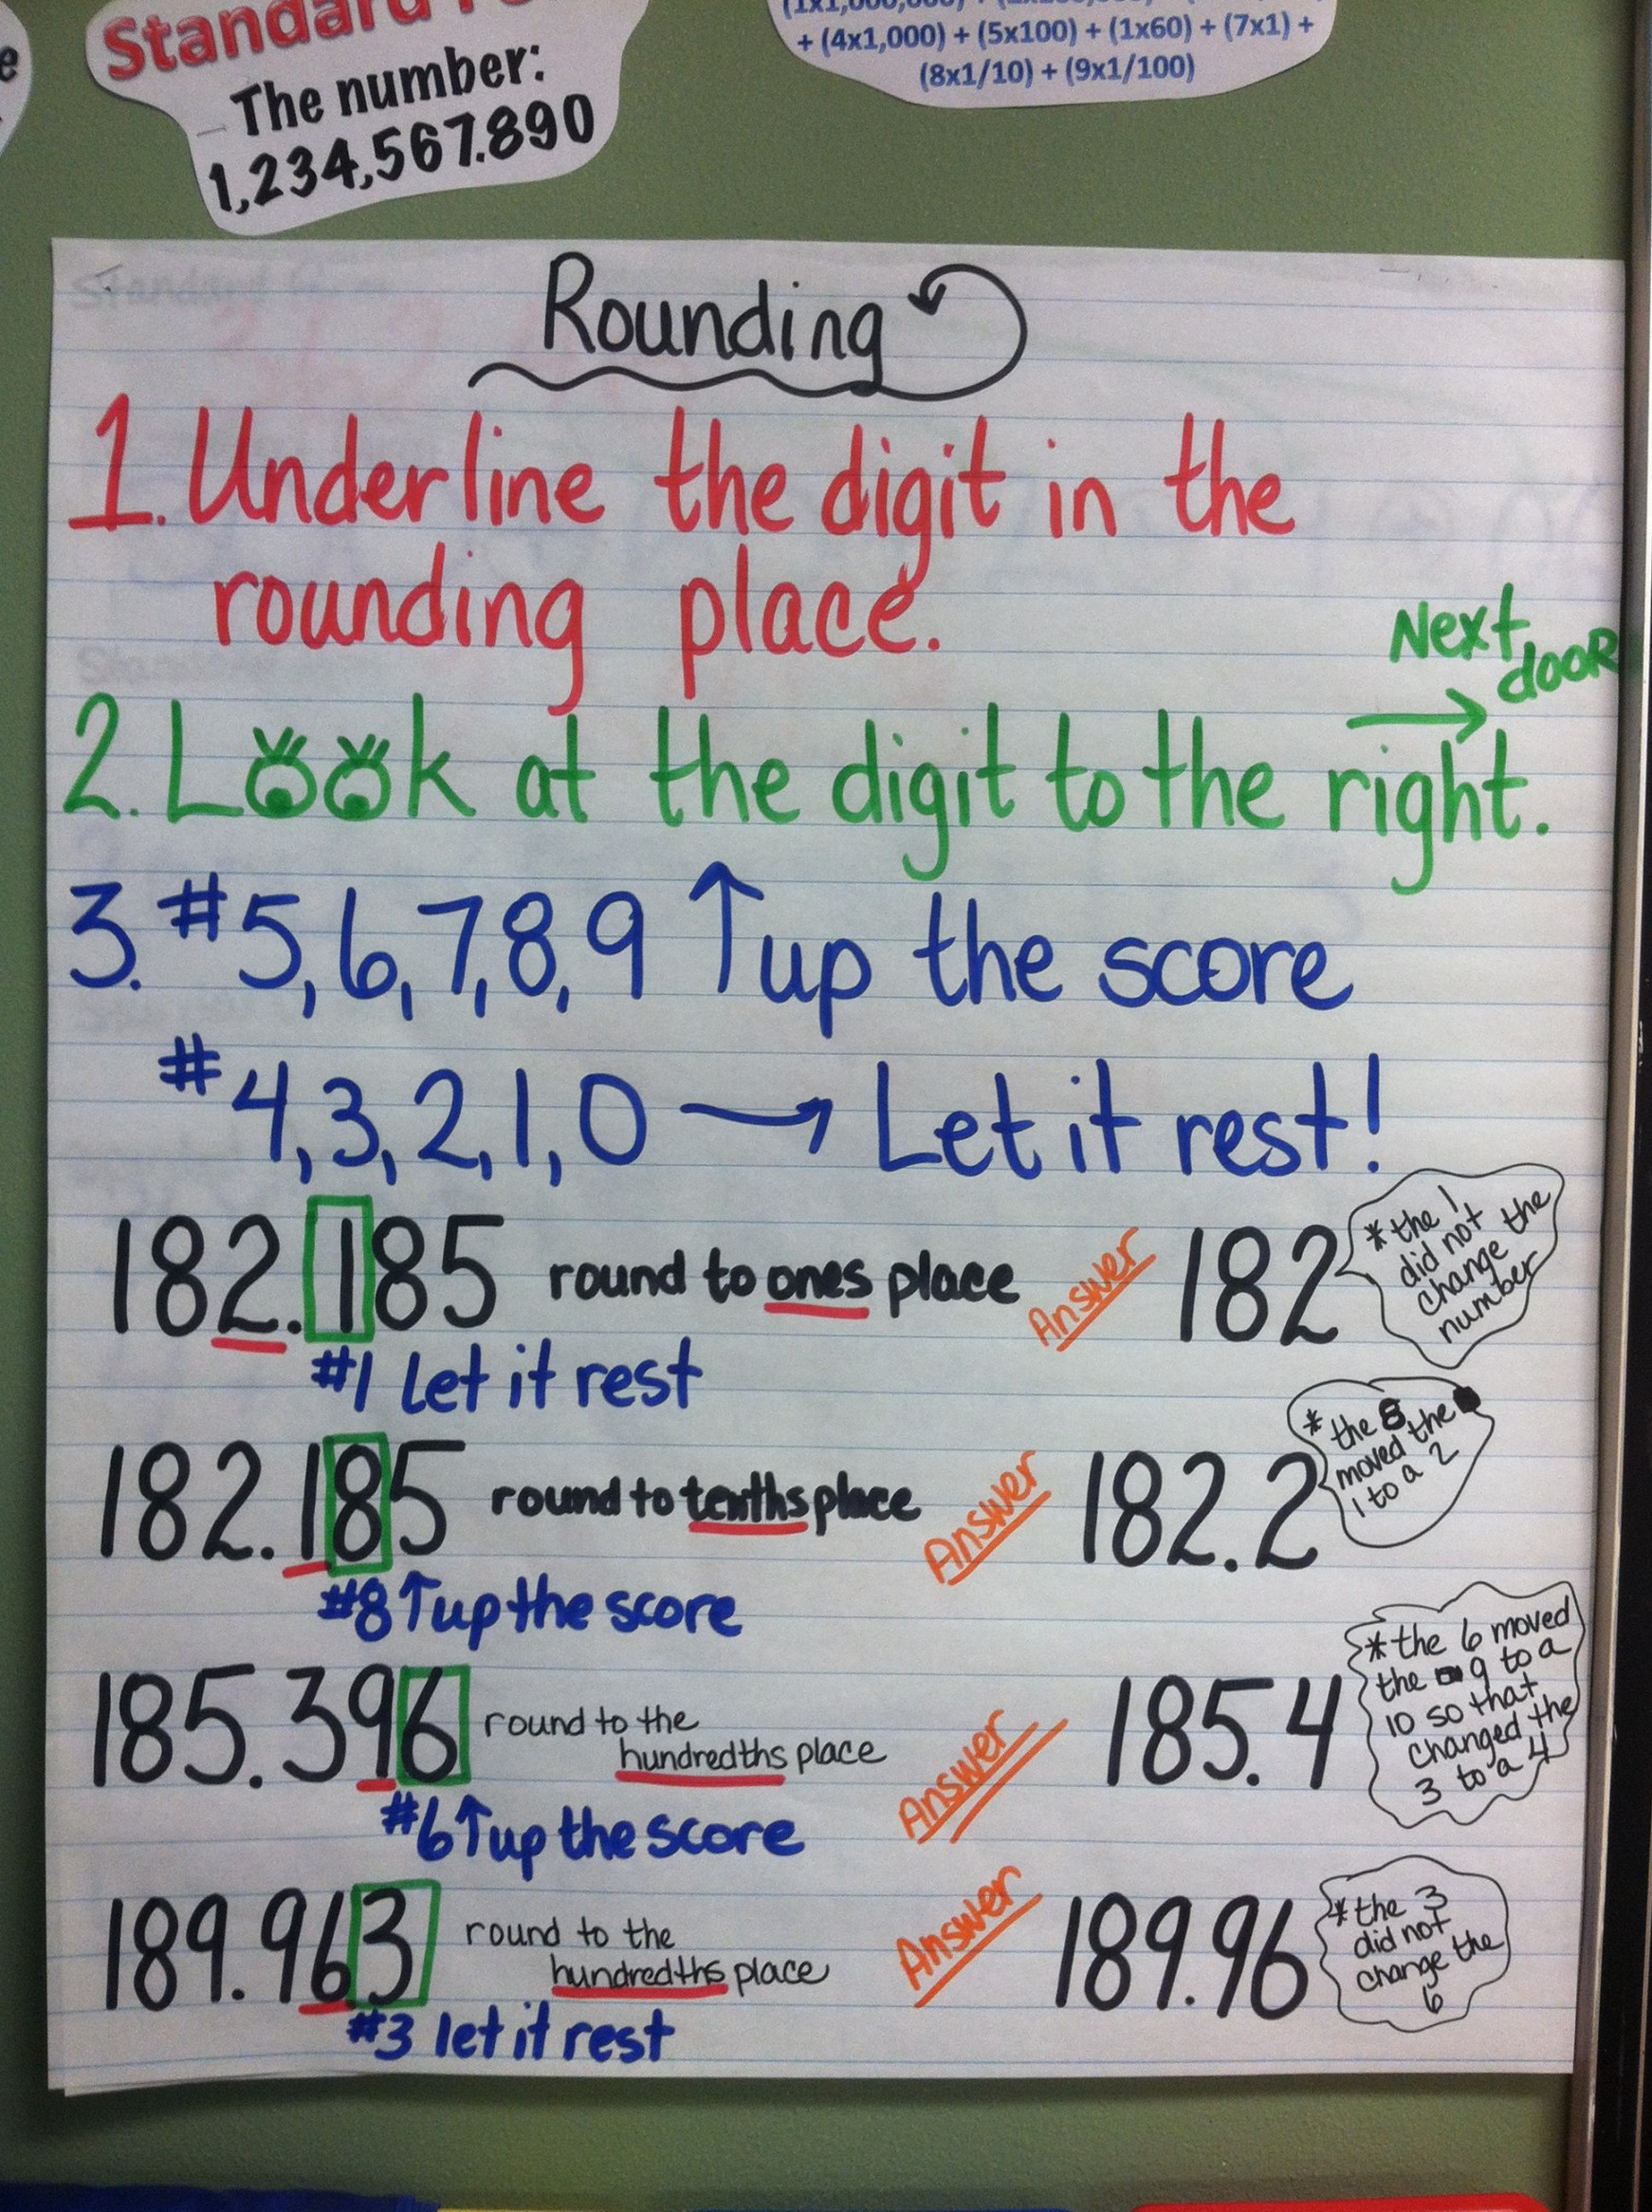 Standard
The number:
1,234,567.890
+ (4x1,000) + (5x100) + (1x60) + (7x1) +
(8x1/10) + (9x1/100)
Rounding
1. Underline the digit in the
rounding place.
Next door
2. Look at the digit to the right.
3. #5,6,7,8,9 ↑up the score
#4,3,2,1,0 → Let it rest!
182.185 round to ones place Answer 182
* the 1
did not
change the
number
#1 Let it rest
182.185 round to tenths place Answer 182.2
* the 8
moved the
1 to a 2
#8↑up the score
185.396 round to the
hundredths place Answer 185.4
* the 6 moved
the 9 to a
10 so that
changed the
3 to a 4
#6↑up the score
189.963 round to the
hundredths place Answer 189.96
* the 3
did not
change the
6
#3 let it rest